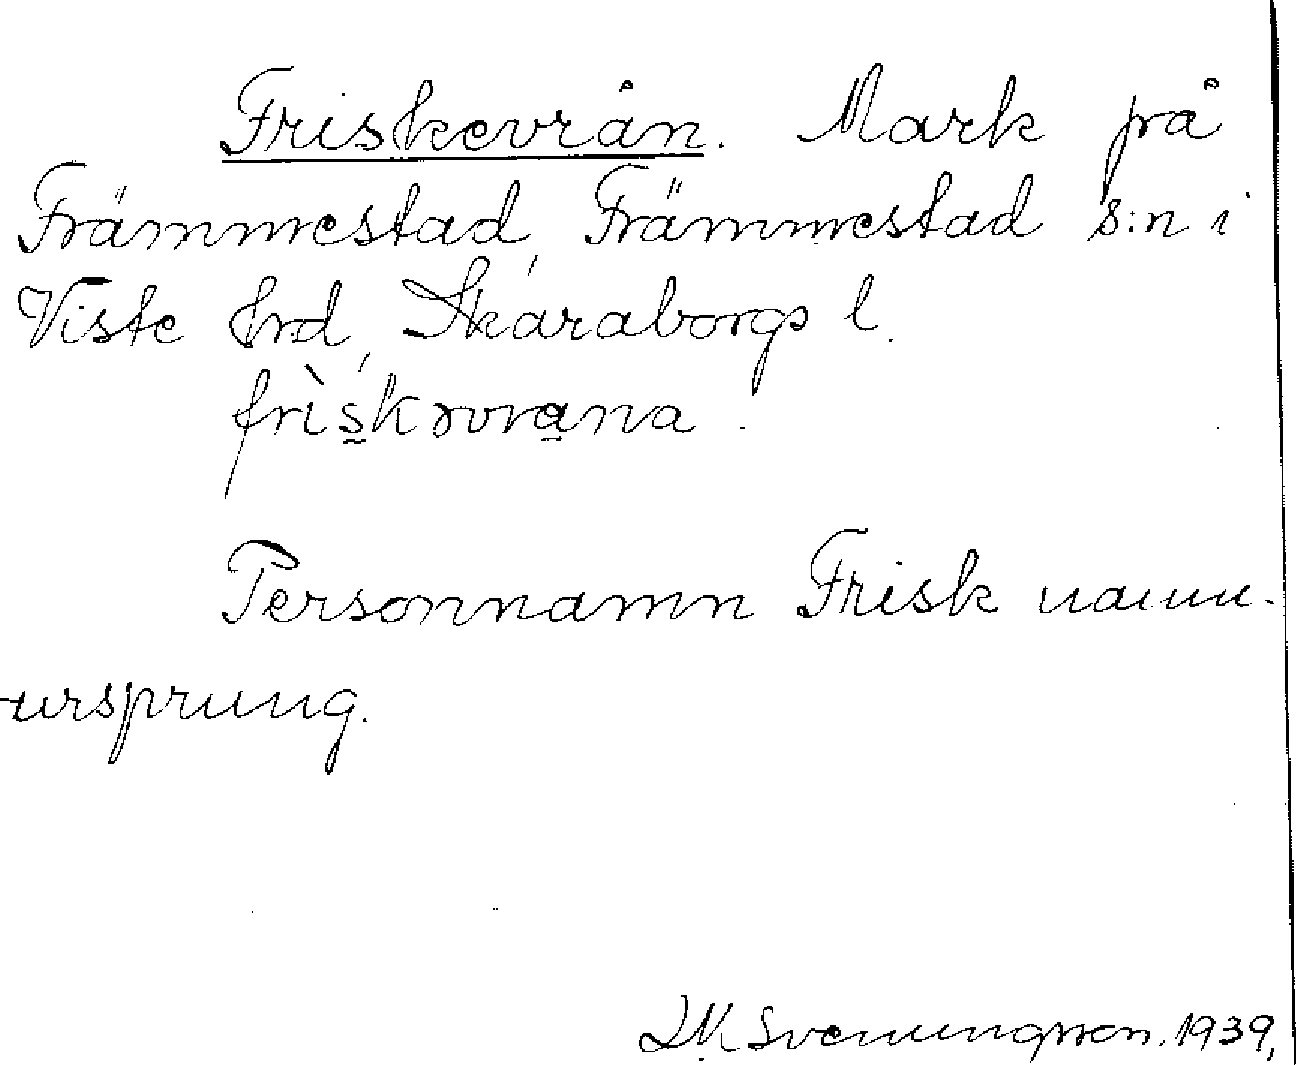 Friskevrån. Mark på
Främmestad, Främmestad s:n i
Viste hrd, Skaraborgs l.
frìskəvrana.
Personnamn Frisk namn-
ursprung.
Svenungsson. 1939.